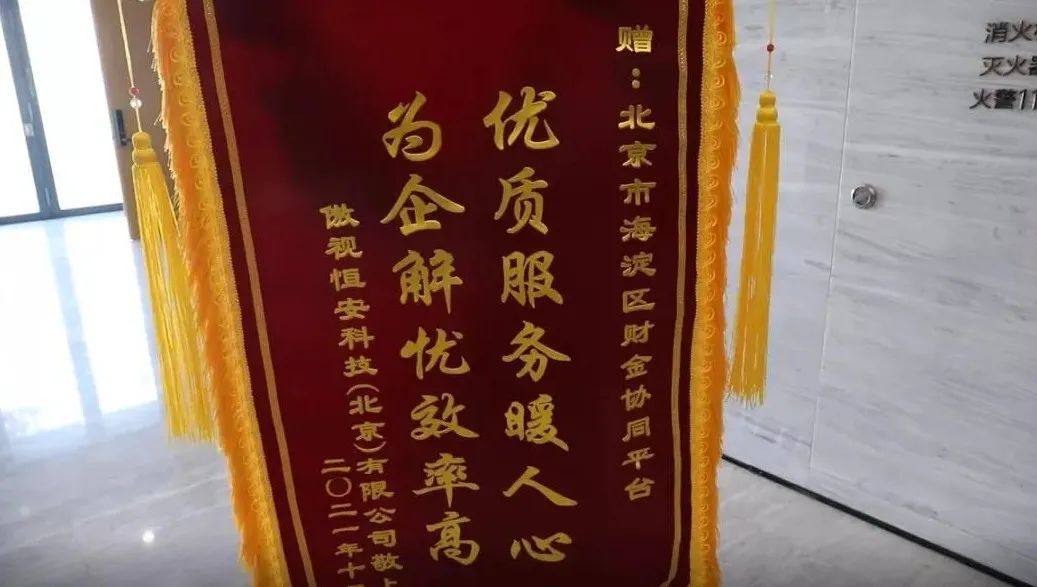 赠：北京市海淀区财金协同平台
优质服务暖人心
为企解忧效率高
傲视恒安科技(北京)有限公司敬上
二〇二一年十
消火
灭火器
火警11